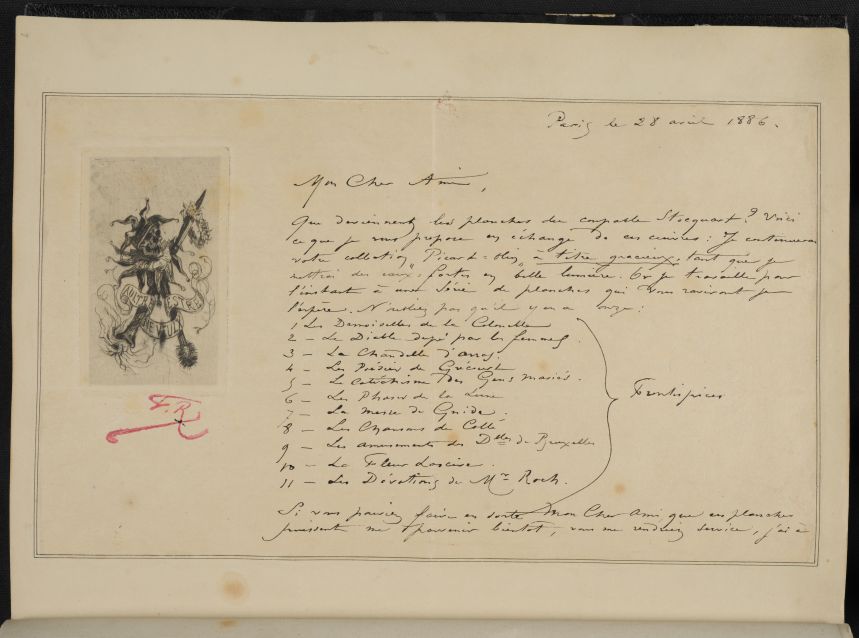 Paris le 28 avril 1886.
Mon Cher Ami,
Que deviennent les planches du coupable Stocquart? Voici
ce que je vous propose en échange de ces cuivres: Je continuerai
votre collection Picard-Olin, à titre gracieux, tant que je
mettrai des eaux-fortes en belle lumière. Or je travaille pour
l'instant à une série de planches qui vous raviront je
l'espère. N'oubliez pas qu'il y en a onze:
1 Les Demoiselles de la Colonelle
2 - Le Diable dupé par les femmes.
3 - La Chandelle d'arras.
4 - Les Poésies de Grécourt
5 - Le catéchisme des Gens mariés.
6 - Les Phases de la Lune
7 - La messe de Gnide.
8 - Les Chansons de Collé
9 - Les amusements des Dlles de Bruxelles
10 - La Fleur Lascive.
11 - Les Dévotions de Mr Roch.
Frontispices
Si vous pouviez faire en sorte Mon Cher Ami que ces planches
puissent me parvenir bientôt, vous me rendriez service, j'ai à
F.R